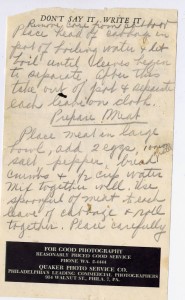 DON'T SAY IT, WRITE IT
Remove core from cabbage
Place head of cabbage in
pot of boiling water & let
boil until leaves begin
to separate, after this
take out of pot & separate
each leaf on cloth.
Prepare Meat
Place meat in large
bowl, add 2 eggs,
salt, pepper, bread
crumbs & 1/2 cup water
Mix together well. Use
spoonful of meat to each
leave of cabbage & roll
together. Place carefully
FOR GOOD PHOTOGRAPHY
REASONABLY PRICED GOOD SERVICE
PHONE WA. 2-4444
QUAKER PHOTO SERVICE CO.
PHILADELPHIA'S LEADING COMMERCIAL PHOTOGRAPHERS
WALNUT ST., PHILA. 7, PA.